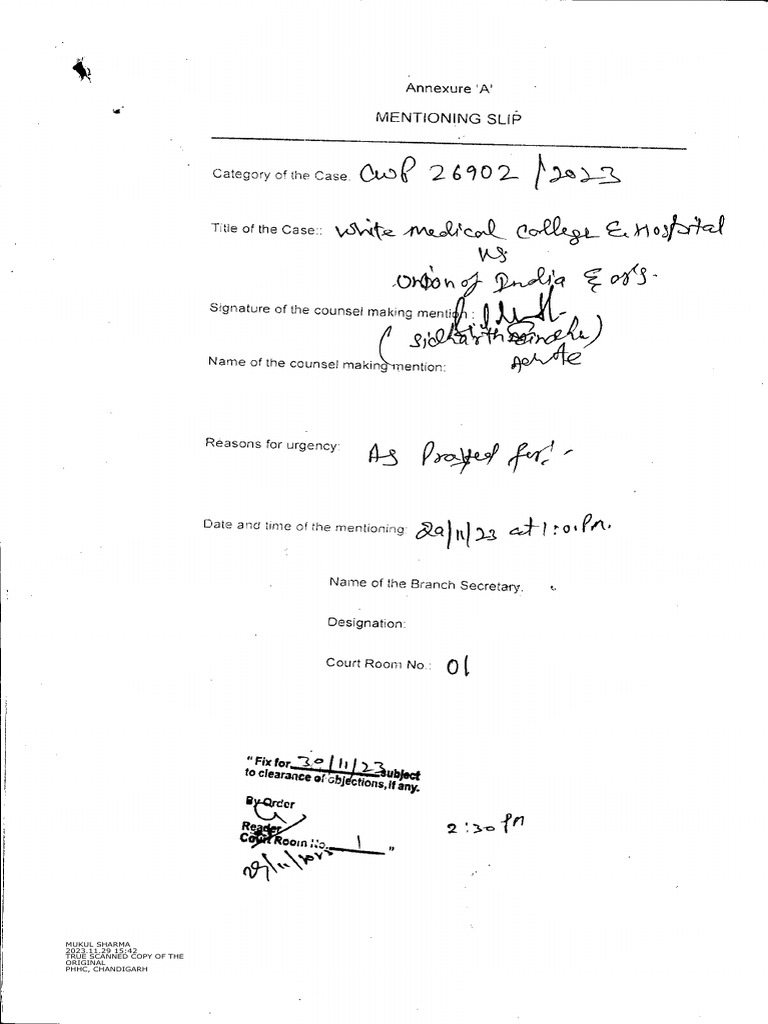 Annexure 'A'
MENTIONING SLIP
Category of the Case. CWP 26902/2023
Title of the Case:: White Medical College & Hospital
Vs
Union of India & ors.
Signature of the counsel making mention :
(Sidharth)
Name of the counsel making mention:
Reasons for urgency: As Prayed for:-
Date and time of the mentioning: 29/11/23 at 1:0.Pm.
Name of the Branch Secretary.
Designation:
Court Room No.: 01
"Fix for 30/11/23 subject
to clearance of objections, if any.
By Order
Reader
Court Room No. 1 "
2:30 PM
29/11/2023
MUKUL SHARMA
2023.11.29 15:42
TRUE SCANNED COPY OF THE
ORIGINAL
PHHC, CHANDIGARH